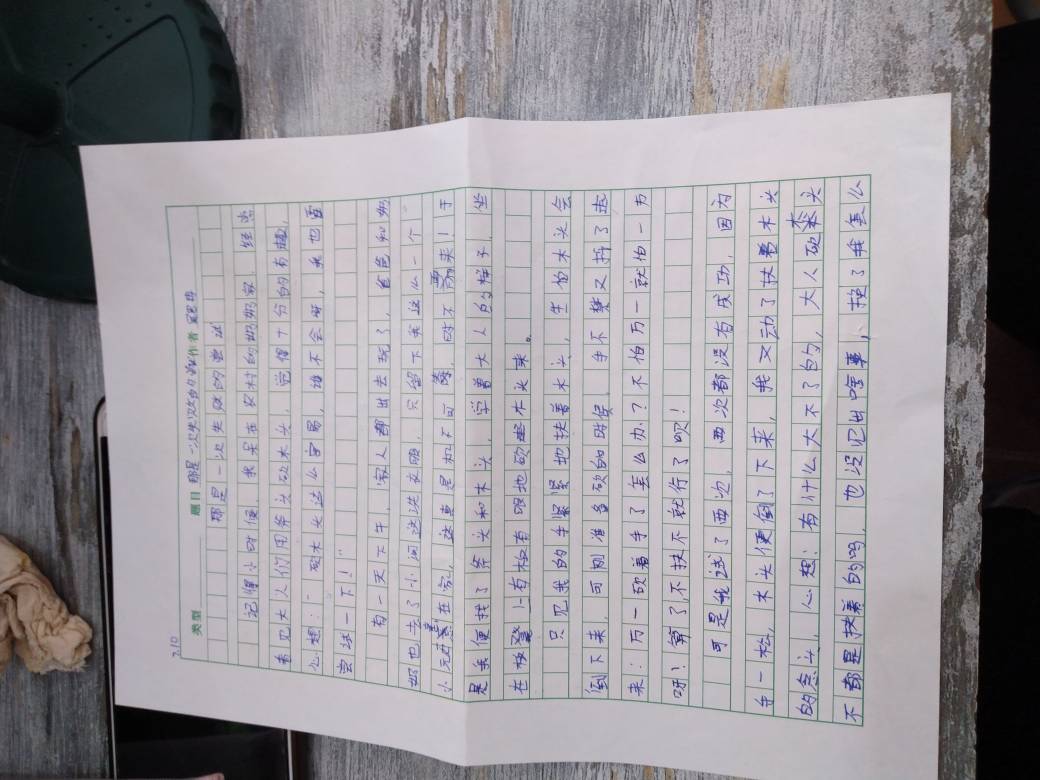 2.10
类型 题目 那是一次失败的尝试 作者
那是一次失败的尝试
记得小时候，我呆在农村的奶奶家，经常
看见大人们用斧头砍木头，觉得十分的有趣，
心想：“砍木头这么容易，谁不会呀，我也要
尝试一下！”
有一天下午，家人都出去玩了，爸爸和奶
奶也去了小河边洗衣服，只留下我这么一个
小孩在家，这真是机不可失，时不再来！于
是我便找了斧头和木头，学着大人的样子，坐
在板凳上有板有眼地砍起木头来。
只见我的手紧紧地扶着木头，生怕木头会
倒下来，可刚准备砍的时候，手不禁又抖了起
来：万一砍着手了怎么办？不怕万一就怕一万
呀！算了，不扶不就行了呗！
可是我试了两次，两次都没有成功，因为
手一松，木头便倒了下来，我又动了扶着木头
的念头，心想：有什么大不了的，大人砍木头
不都是扶着的吗，也没见出啥事，换了我怎么